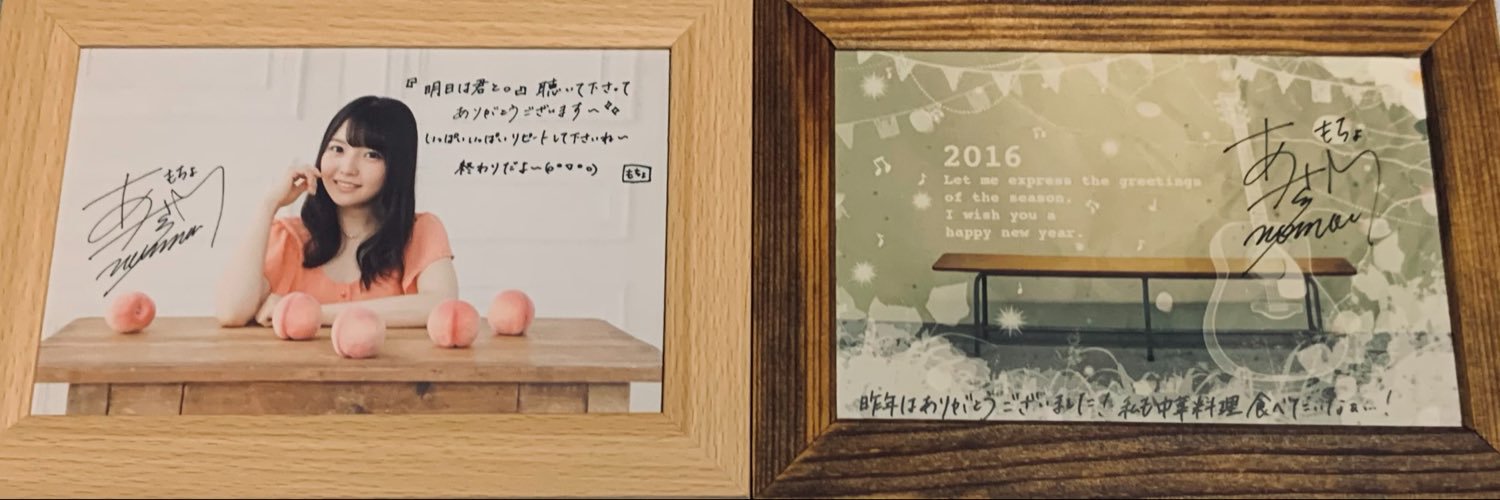 『明日は君と。』聴いて下さって
ありがとうございます〜
いっぱいいっぱいリピートして下さいね〜
終わりだよ〜(o°▽°o)
もちょ
あさくら
もちょ
momo
2016
Let me express the greetings
of the season.
I wish you a
happy new year.
もちょ
あさくら
momo
昨年はありがとうございました！私も中華料理食べたいなぁ…！